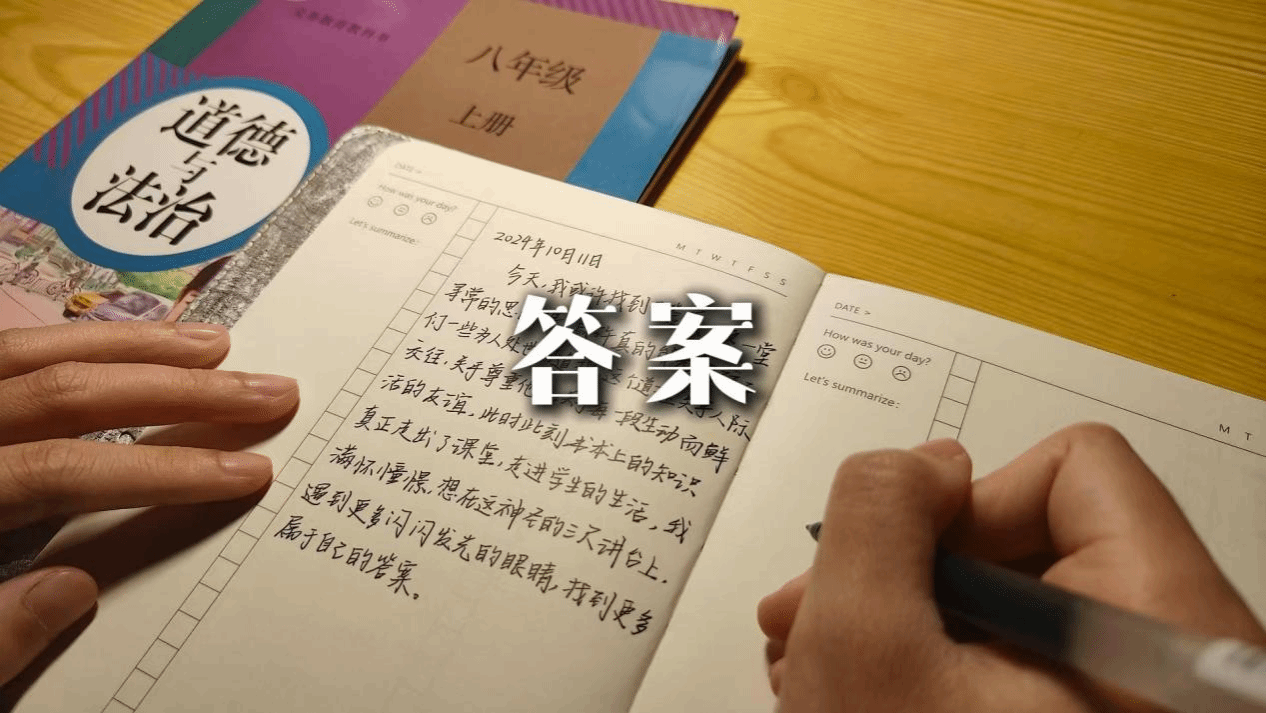 义务教育教科书
八年级
上册
道德
与
法治
DATE >
How was your day?
Let's summarize:
M T W T F S S
2024年10月11日
今天,我或许找到
寻常的思 许真的 一堂
们一些为人处世 这个道 关于人际
交往,关乎尊重他 每一段生动而鲜
活的友谊,此时此刻书本上的知识
真正走出了课堂,走进学生的生活,我
满怀憧憬,想在这神圣的三尺讲台上,
遇到更多闪闪发光的眼睛,找到更多
属于自己的答案。
答案
DATE >
How was your day?
Let's summarize:
M T